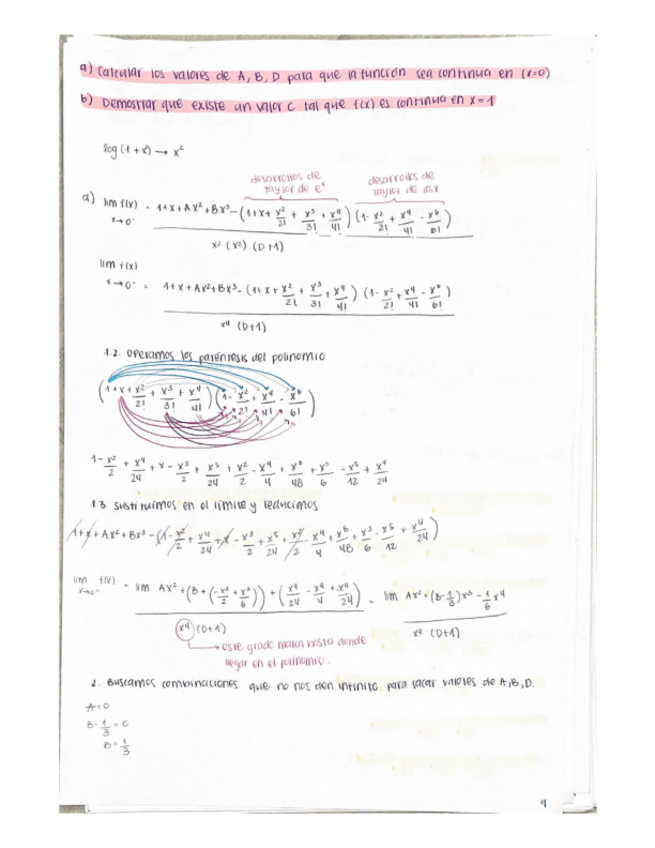 a) Calcular los valores de A, B, D para que la función sea continua en (x=0)
b) Demostrar que existe un valor C tal que f(x) es continua en x=1
log (1+x²) → x²
desarrollos de taylor de eˣ
desarrollos de taylor de cosx
a) lim f(x) = 1+x+Ax²+Bx³-(1+x+x²/2!+x³/3!+x⁴/4!)(1-x²/2!+x⁴/4!-x⁶/6!)
x→0⁻
x² (x²) (D+1)
lim f(x)
x→0⁻ = 1+x+Ax²+Bx³-(1+x+x²/2!+x³/3!+x⁴/4!)(1-x²/2!+x⁴/4!-x⁶/6!)
x⁴ (D+1)
1.2. Operamos los paréntesis del polinomio
(1+x+x²/2!+x³/3!+x⁴/4!)(1-x²/2!+x⁴/4!-x⁶/6!)
1-x²/2+x⁴/24+x-x³/2+x⁵/24+x²/2-x⁴/4+x⁶/48+x³/6-x⁵/12+x⁴/24
1.3 sustituimos en el límite y reducimos
1+x+Ax²+Bx³-(1-x²/2+x⁴/24+x-x³/2+x⁵/24+x²/2-x⁴/4+x⁶/48+x³/6-x⁵/12+x⁴/24)
lim f(x) = lim Ax²+(B+(-x³/2+x³/6))+(x⁴/24-x⁴/4+x⁴/24) = lim Ax²+(B-1/3)x³-1/6x⁴
x→0⁻
x⁴ (D+1) x⁴ (D+1)
este grado marca hasta donde
llegar en el polinomio.
2. Buscamos combinaciones que no nos den infinito para sacar valores de A,B,D.
A=0
B-1/3=0
B=1/3
9